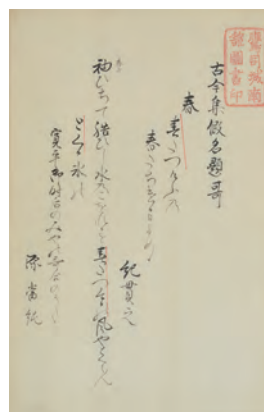 鷹司城南
館圖書印
古今集假名題哥
春
春たつけふ
春たちける日よめる
紀貫之
袖ひちて結ひし水のこほれるを春たつけふの風やとくらん
とくる氷
寛平御時きさいのみやの哥合のうた
源當純